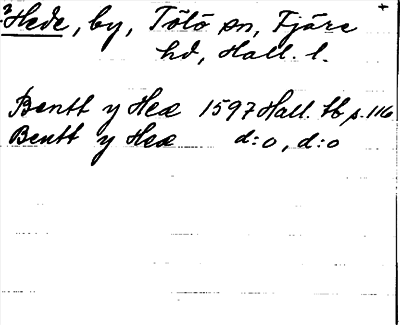 ³Hede, by, Tölö sn, Fjäre +
hd, Hall. l.
Bentt y Heæ 1597 Hall. tb p. 116
Bentt y Heæ d:o, d:o